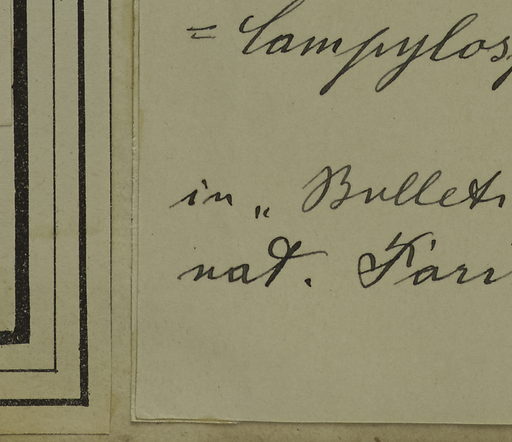 = Campylos
in „ Bulleti
nat. Pari